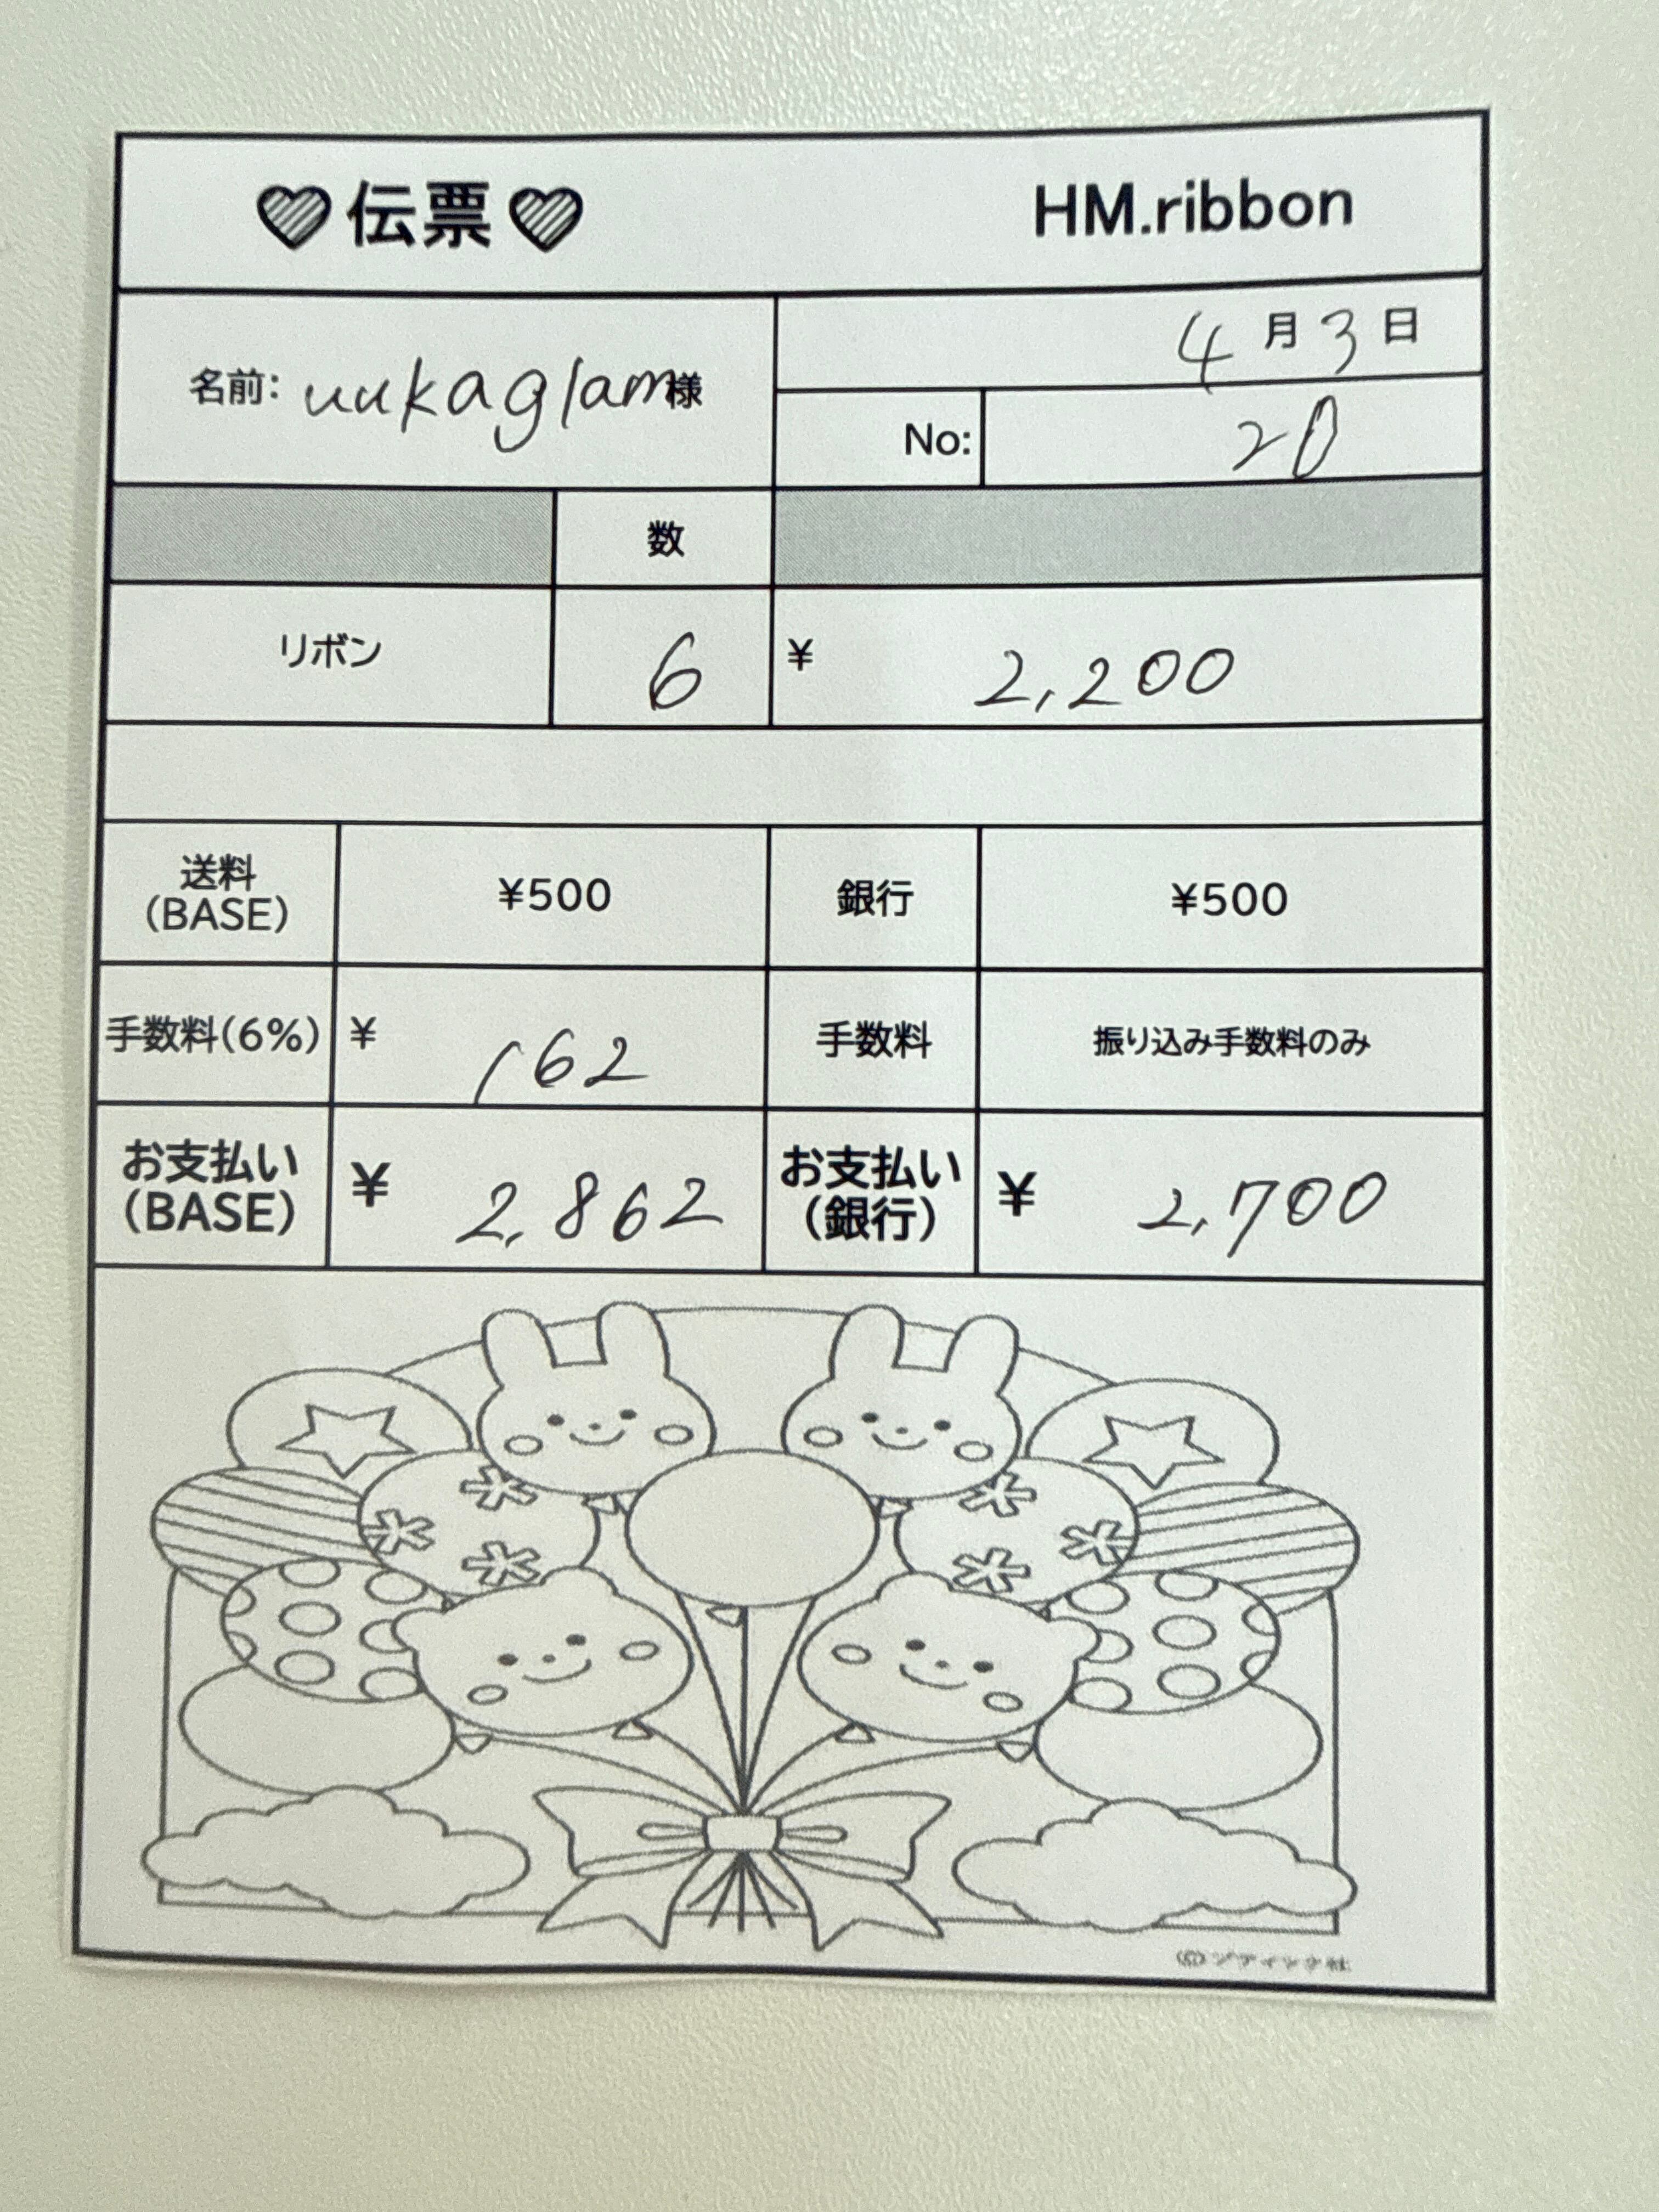 伝票 HM.ribbon
名前: uukaglam様
4月3日
No: 20
数
リボン 6 ¥ 2,200
送料(BASE) ¥500 銀行 ¥500
手数料(6%) ¥ 162 手数料 振り込み手数料のみ
お支払い(BASE) ¥ 2,862 お支払い(銀行) ¥ 2,700